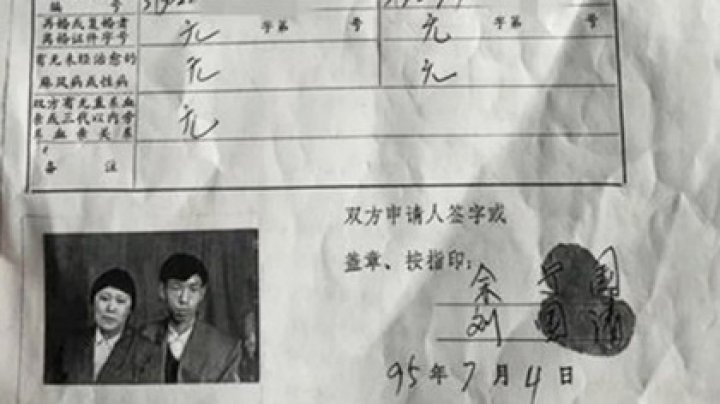 编 号
再婚或复婚者 无 字第 号 无 字第 号
离婚证件字号
有无未经治愈的 无 无
麻风病或性病
双方有无直系血
亲或三代以内旁 无
系血亲关系
备 注
双方申请人签字或
盖章、按指印:
余 国
刘 清
95 年 7 月 4 日